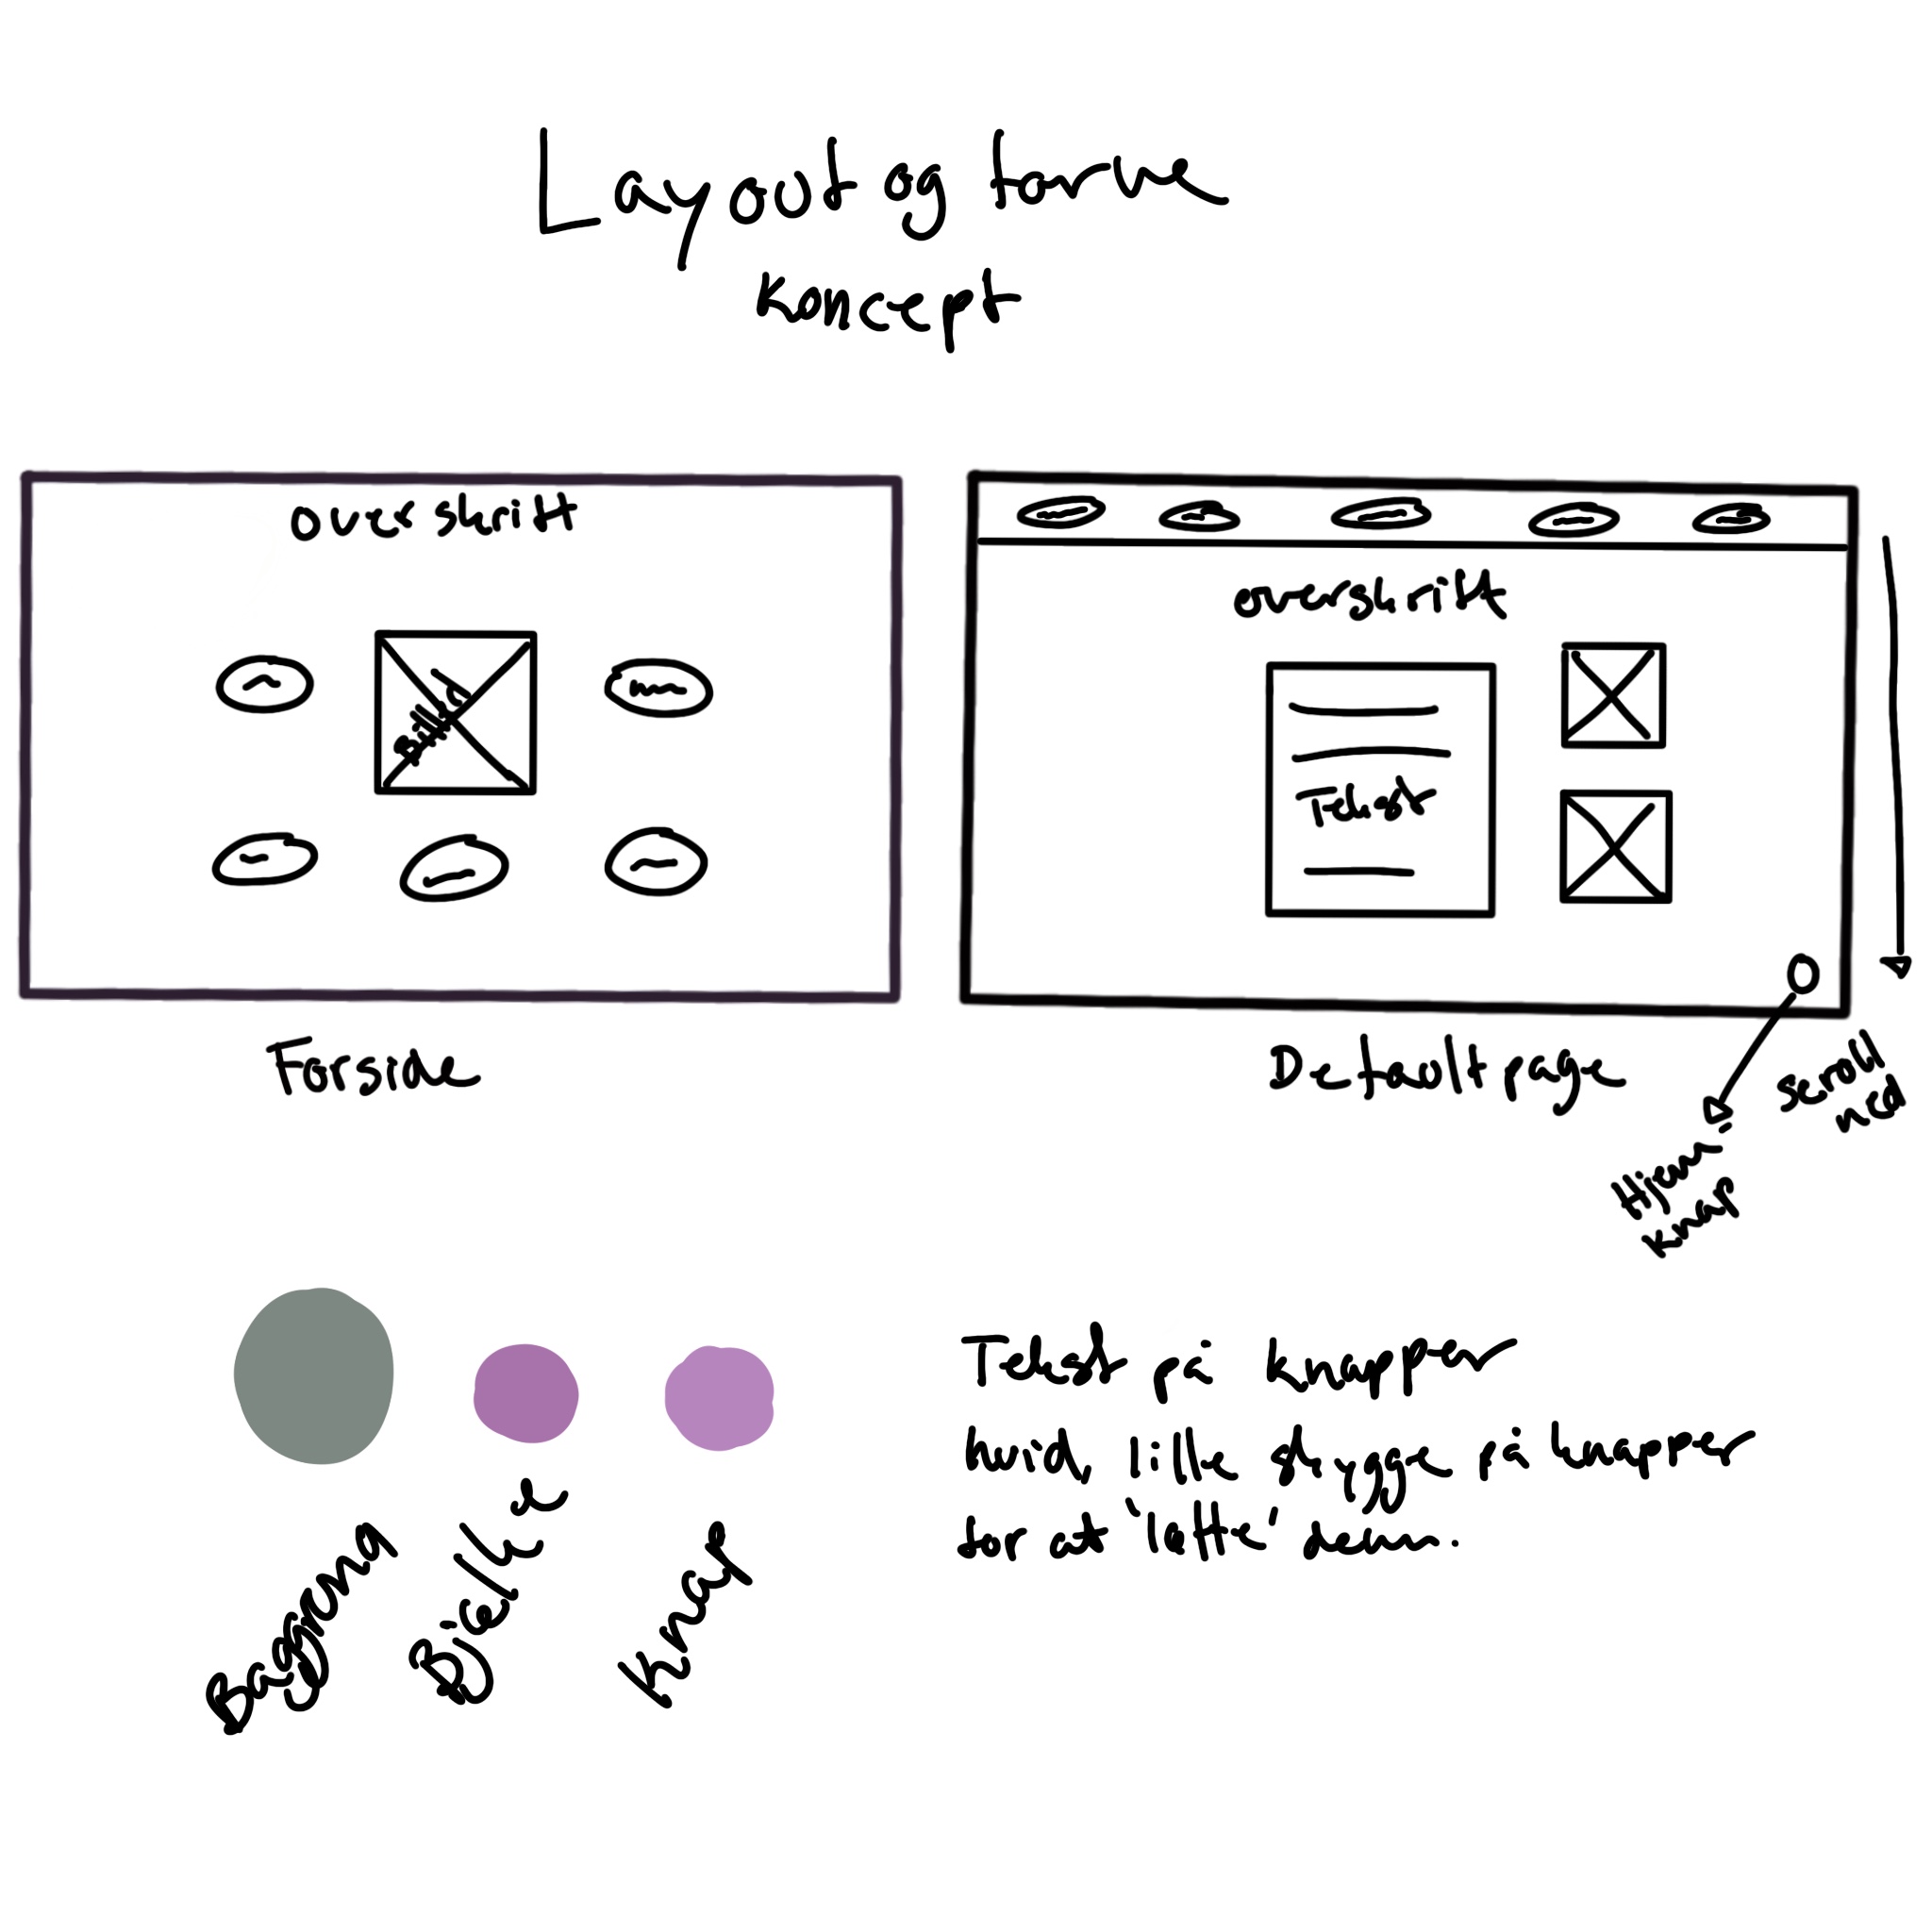 Layout og farve
koncept
overskrift
Billede
overskrift
Tekst
Forside
Default page
scroll
ned
Hjem
knap
Baggrund
Bjælke
knap
Tekst på knapper
hvid, lille skygge på knapper
for at 'løfte' dem.